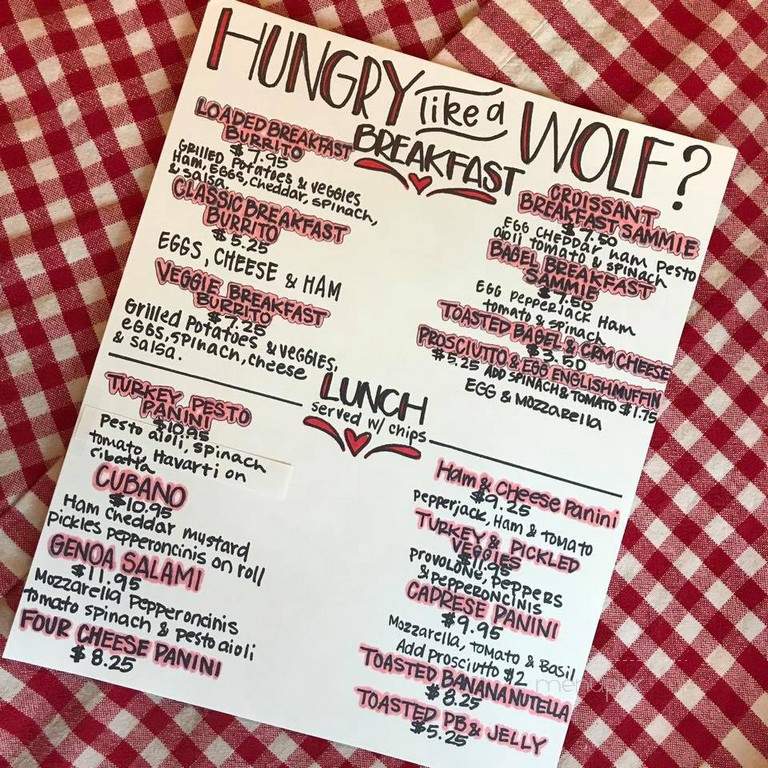 HUNGRY like a WOLF?
BREAKFAST
LOADED BREAKFAST
BURRITO
$7.95
Grilled Potatoes & veggies
Ham, Eggs, cheddar, spinach,
& salsa.
CLASSIC BREAKFAST
BURRITO
$5.25
EGGS, CHEESE & HAM
VEGGIE BREAKFAST
BURRITO
$7.25
Grilled Potatoes & veggies,
eggs, spinach, cheese
& salsa.
CROISSANT
BREAKFAST SAMMIE
$7.50
EGG Cheddar ham pesto
aioli tomato & spinach
BAGEL BREAKFAST
SAMMIE
$7.50
EGG PepperJack Ham
tomato & spinach
TOASTED BAGEL & CRM CHEESE
$3.50
PROSCIUTTO & EGG ENGLISH MUFFIN
$5.25 ADD SPINACH & TOMATO $1.75
EGG & Mozzarella
LUNCH
served w/ chips
TURKEY PESTO
PANINI
$10.95
Pesto aioli, spinach
tomato, Havarti on
cibatta
CUBANO
$10.95
Ham cheddar mustard
Pickles pepperoncinis on roll
GENOA SALAMI
$11.95
Mozzarella Pepperoncinis
tomato spinach & pesto aioli
FOUR CHEESE PANINI
$8.25
Ham & Cheese Panini
$9.25
Pepperjack, Ham & tomato
TURKEY & PICKLED
VEGGIES
$11.95
Provolone, Peppers
& pepperoncinis
CAPRESE PANINI
$9.95
Mozzarella, tomato & Basil
Add Prosciutto $2
TOASTED BANANA NUTELLA
$8.25
TOASTED PB & JELLY
$5.25